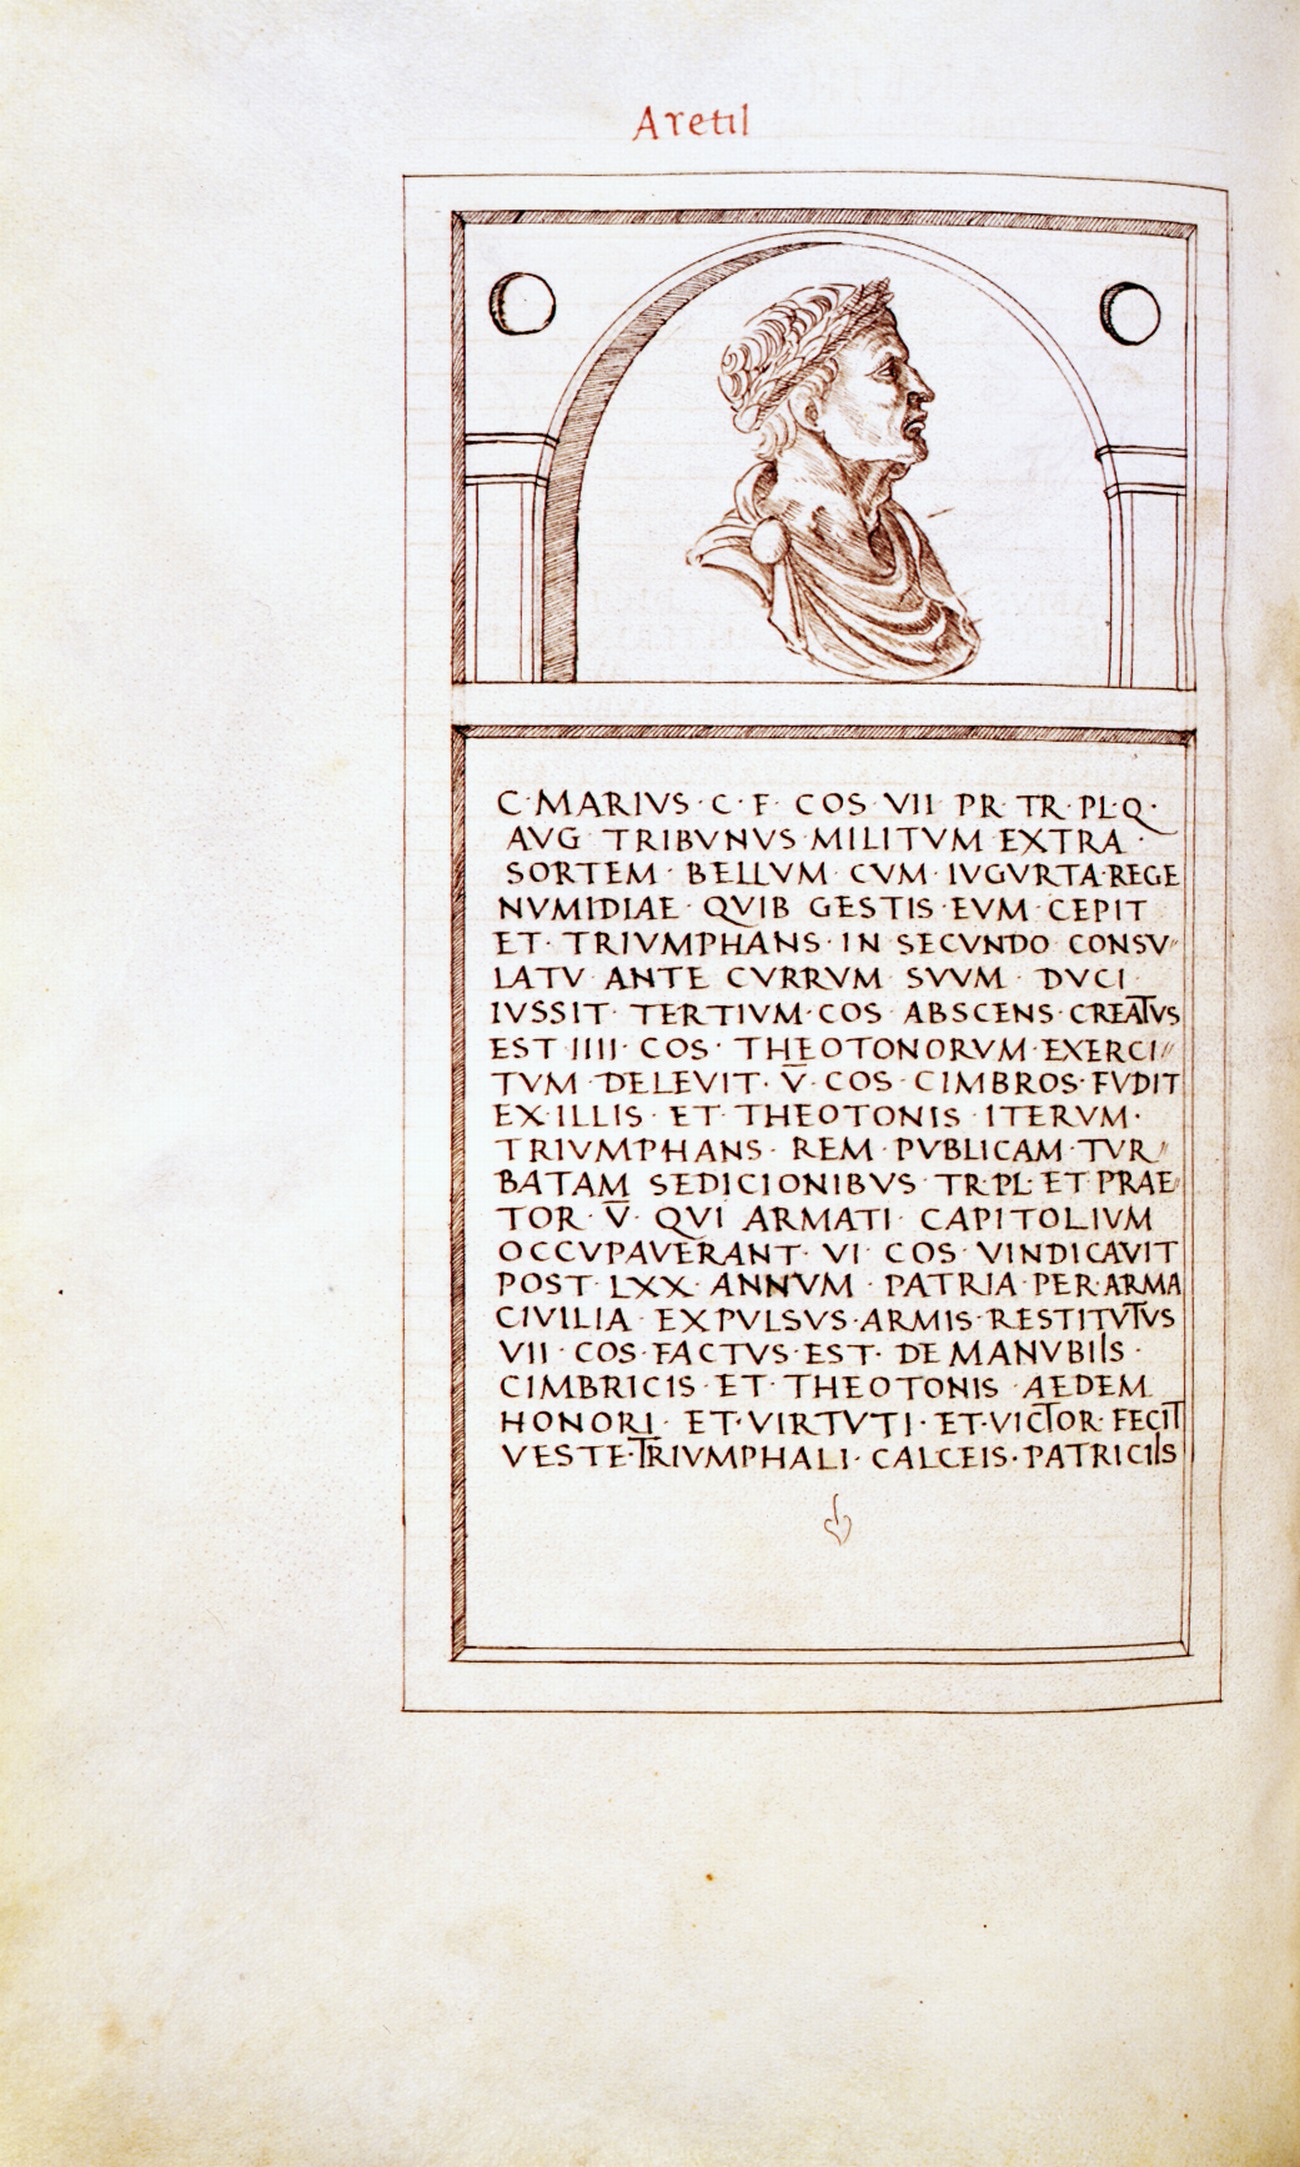 Aretii
C·MARIVS·C·F· COS·VII PR·TR·PL·Q·
AVG·TRIBVNVS·MILITVM·EXTRA·
SORTEM·BELLVM·CVM·IVGVRTA·REGE
NVMIDIAE·QVIB GESTIS·EVM·CEPIT
ET·TRIVMPHANS·IN SECVNDO CONSV//
LATV ANTE CVRRVM SVVM·DVCI·
IVSSIT·TERTIVM·COS·ABSCENS·CREATVS
EST·IIII·COS·THEOTONORVM·EXERCI//
TVM·DELEVIT·V̅·COS·CIMBROS·FVDIT
EX·ILLIS·ET·THEOTONIS·ITERVM·
TRIVMPHANS·REM·PVBLICAM·TVR//
BATAM SEDICIONIBVS·TR·PL·ET PRAE//
TOR·V̅·QVI ARMATI·CAPITOLIVM
OCCVPAVERANT·VI·COS·VINDICAVIT
POST·LXX·ANNVM·PATRIA·PER·ARMA
CIVILIA·EXPVLSVS·ARMIS·RESTITVTVS
VII·COS·FACTVS·EST·DE MANVBIIS·
CIMBRICIS·ET·THEOTONIS·AEDEM
HONORI·ET·VIRTVTI·ET·VICTOR·FECIT
VESTE·TRIVMPHALI·CALCEIS·PATRICIIS